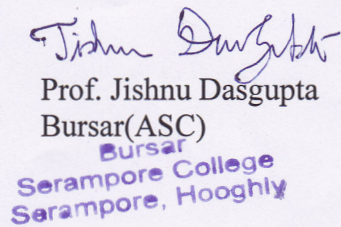 Jishnu Dasgupta
Prof. Jishnu Dasgupta
Bursar(ASC)
Bursar
Serampore College
Serampore, Hooghly